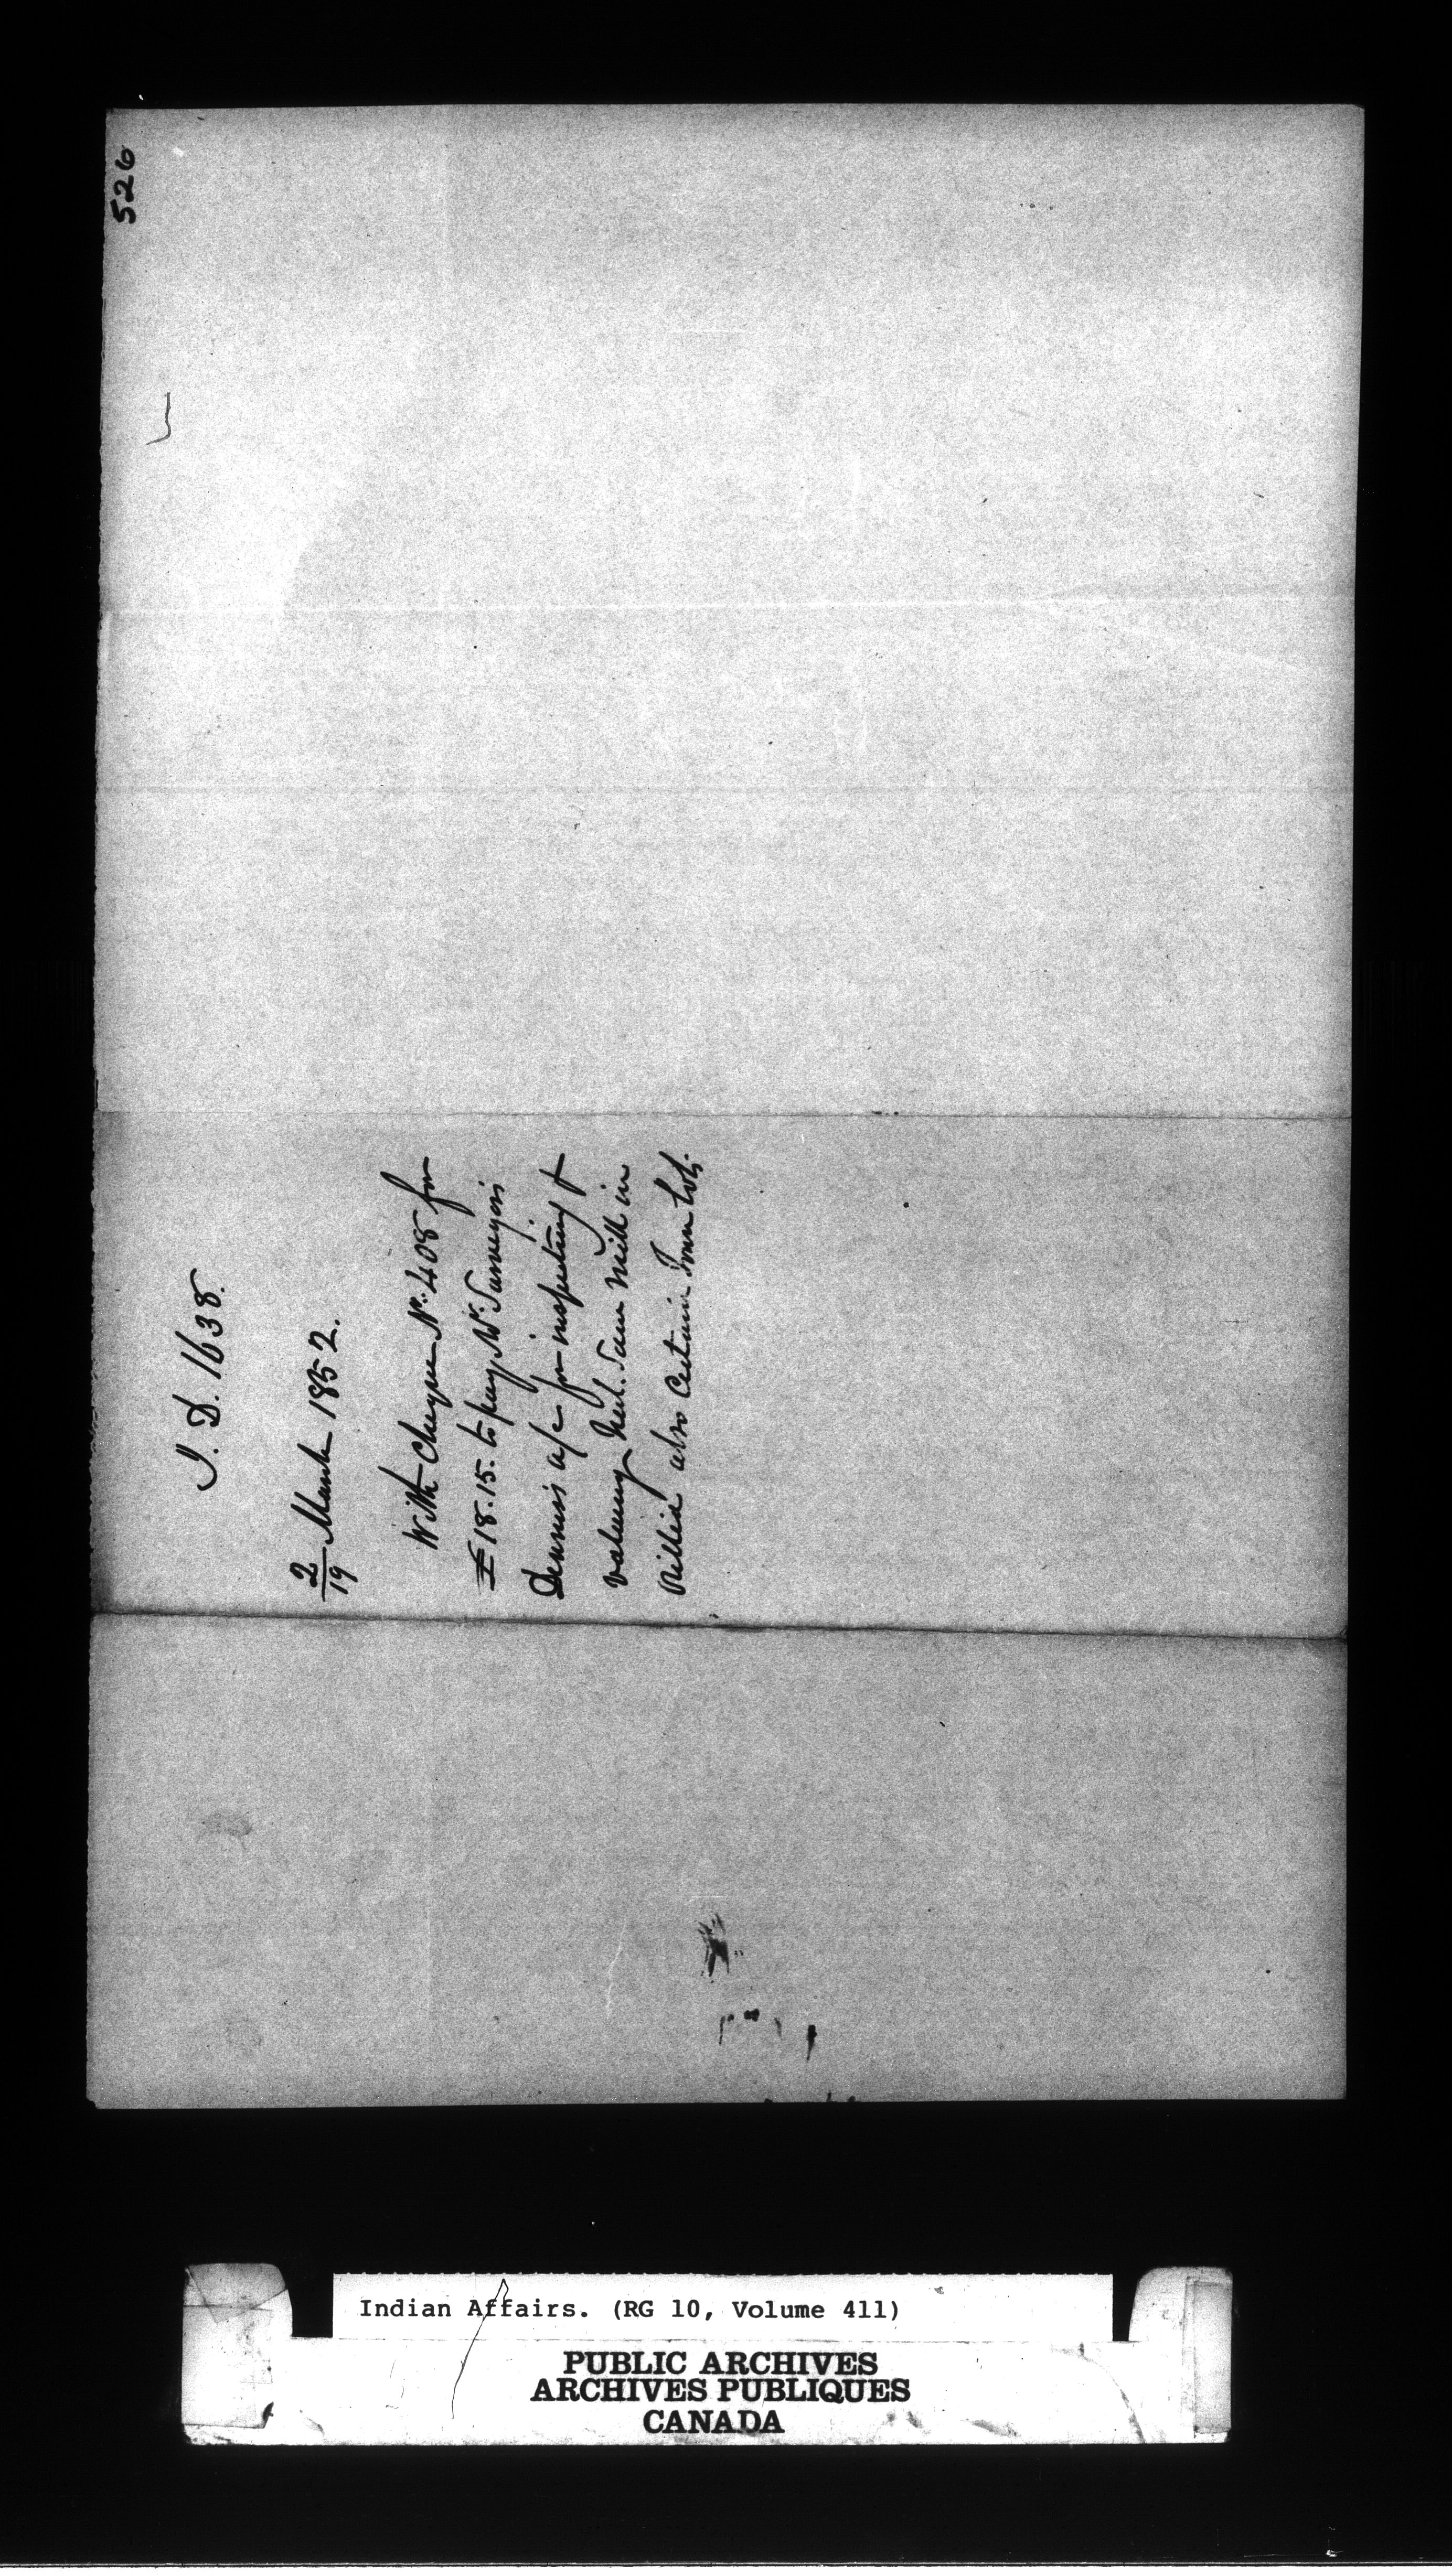 526
I. D. 1638.
2/19 March 1852.
With Cheque No. 408 for
£18.15. to pay Mr. Surveyor
Dennis a/c for inspecting &
valuing Saw Mill in
also Certain Town Lots.
Indian Affairs. (RG 10, Volume 411)
PUBLIC ARCHIVES
ARCHIVES PUBLIQUES
CANADA